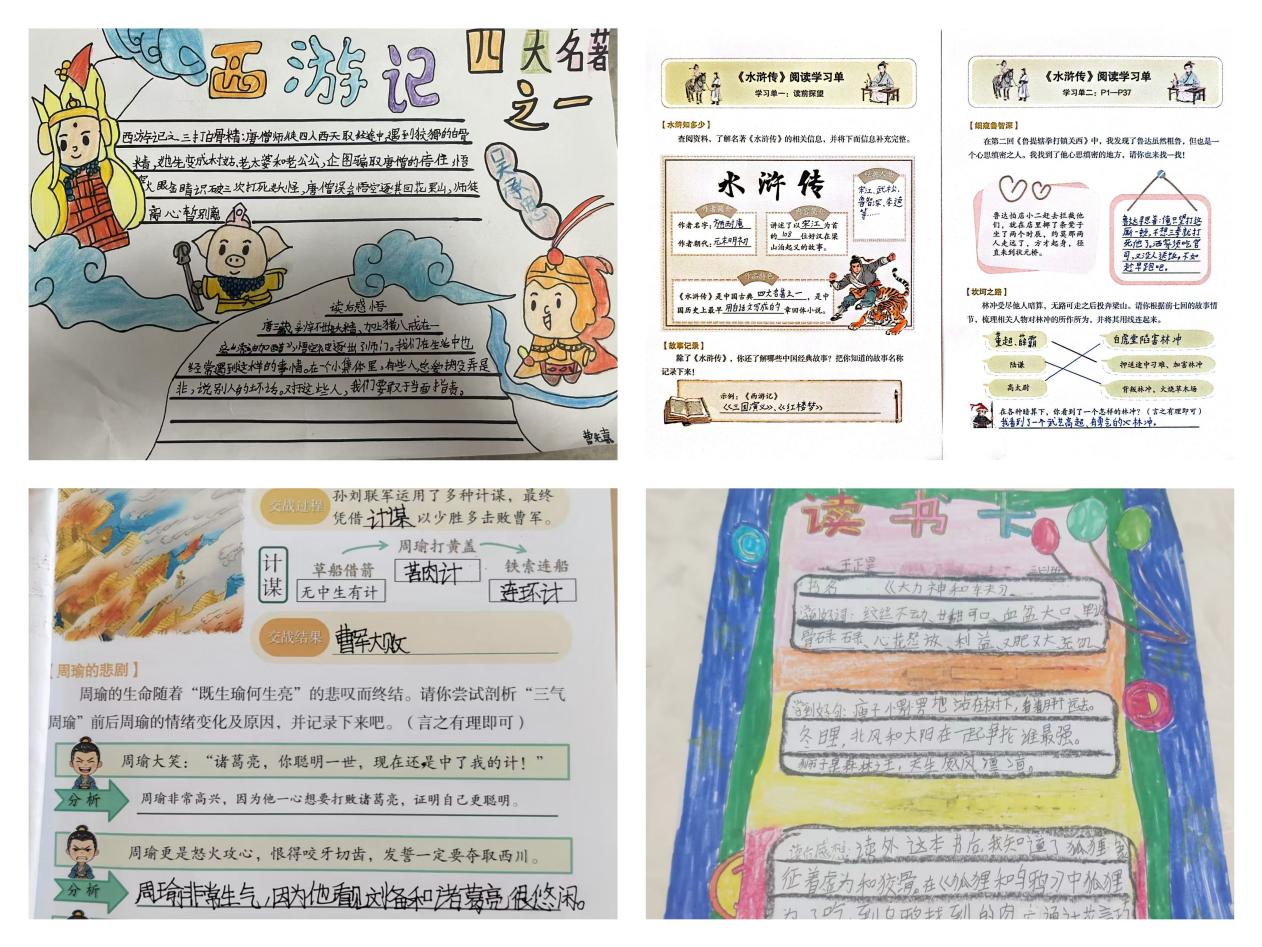 西游记
四大名著
之一
西游记之三打白骨精:唐僧师徒四人西天取经途中,遇到狡猾的白骨
精,她先变成村姑,老太婆和老公公,企图骗取唐僧的信任,悟
空火眼金睛识破三次打死妖怪,唐僧误会悟空逐其回花果山,师徒
离心暂别离
吴承恩
读后感悟
经常遇到这样的事情。在一个小集体里,有些人总爱搬弄是
非,说别人的坏话。对于这些人,我们要敢于当面指责。
《水浒传》阅读学习单
学习单一:读前探望
【水浒知多少】
查阅资料,了解名著《水浒传》的相关信息,并将下面信息补充完整。
水浒传
作者名字:施耐庵
作者朝代:元末明初
讲述了以宋江为首
的108位好汉在梁
山泊起义的故事。
宋江、武松、
鲁智深、李逵
等……
《水浒传》是中国古典四大名著之一,是中
国历史上最早用白话文写成的章回体小说。
【故事记录】
除了《水浒传》,你还了解哪些中国经典故事?把你知道的故事名称
记录下来!
示例:《西游记》
《三国演义》、《红楼梦》
《水浒传》阅读学习单
学习单二:P1—P37
【细窥鲁智深】
在第二回《鲁提辖拳打镇关西》中,我发现了鲁达虽然粗鲁,但也是一
个心思缜密之人。我找到了他心思缜密的地方,请你也来找一找!
鲁达怕店小二赶去拦截他
们,就在店里掇了条凳子
坐了两个时辰,约莫那两
人走远了,方才起身,径
直来到状元桥。
鲁达想着:俺只望打这
厮一顿,不想三拳就打
死他了。洒家须吃官
司,又没人送饭,不如
趁早跑吧。
【坎坷之路】
林冲受尽他人暗算,无路可走之后投奔梁山。请你根据前七回的故事情
节,梳理相关人物对林冲的所作所为,并将其用线连起来。
董超、薛霸
白虎堂陷害林冲
陆谦
押送途中刁难、加害林冲
高太尉
背叛林冲,火烧草木场
在各种暗算下,你看到了一个怎样的林冲?(言之有理即可)
我看到了一个武艺高超、有勇气的林冲。
交战过程
孙刘联军运用了多种计谋,最终
凭借计谋以少胜多击败曹军。
计谋
周瑜打黄盖
苦肉计
草船借箭
无中生有计
铁索连船
连环计
交战结果
曹军大败
【周瑜的悲剧】
周瑜的生命随着“既生瑜何生亮”的悲叹而终结。请你尝试剖析“三气
周瑜”前后周瑜的情绪变化及原因,并记录下来吧。(言之有理即可)
周瑜大笑:“诸葛亮,你聪明一世,现在还是中了我的计!”
分析
周瑜非常高兴,因为他一心想要打败诸葛亮,证明自己更聪明。
周瑜更是怒火攻心,恨得咬牙切齿,发誓一定要夺取西川。
分析
周瑜非常生气,因为他看见刘备和诸葛亮很悠闲。
读书卡
书名
纹丝不动、甘甜可口、血盆大口、
心花怒放、利益、又肥又大
冬日里,北风和太阳在一起争论谁最强。
狮子是森林之王,天生威风凛凛。
读后感想:读外这本书后,我知道了狐狸
征着虚为和狡骨。在《狐狸和乌鸦》中狐狸